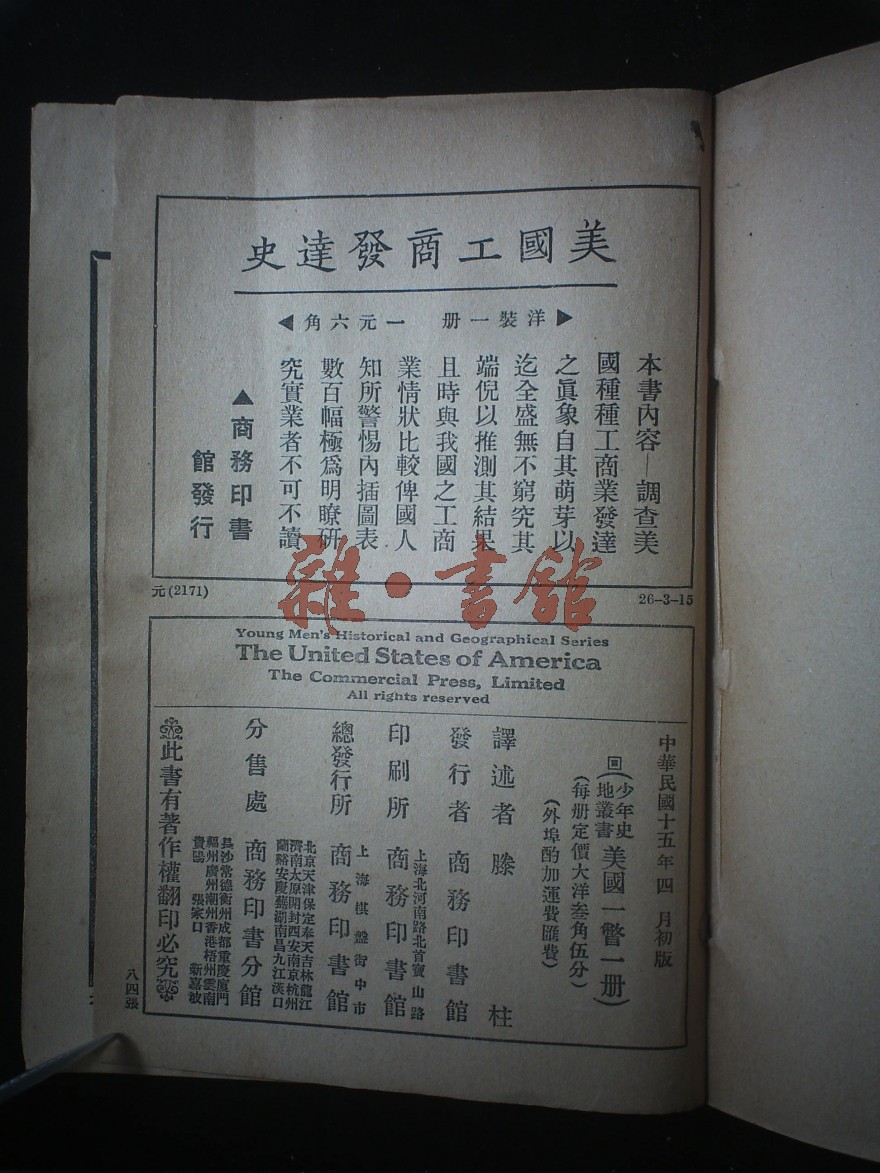 美國工商發達史
▶洋裝一册 一元六角◀
本書內容—調查美
國種種工商業發達
之眞象自其萌芽以
迄全盛無不窮究其
端倪以推測其結果
且時與我國之工商
業情狀比較俾國人
知所警惕內插圖表
數百幅極爲明瞭硏
究實業者不可不讀
▲商務印書
館發行
元(2171)
26-3-15
雜·書館
Young Men's Historical and Geographical Series
The United States of America
The Commercial Press, Limited
All rights reserved
中華民國十五年四月初版
回(少年史地叢書 美國一瞥一册)
(每册定價大洋叁角伍分)
(外埠酌加運費匯費)
譯述者 滕柱
發行者 商務印書館
上海北河南路北首寶山路
印刷所 商務印書館
上海棋盤街中市
總發行所 商務印書館
北京天津保定奉天吉林龍江
濟南太原開封西安南京杭州
蘭谿安慶蕪湖南昌九江漢口
分售處 商務印書分館
長沙常德衡州成都重慶廈門
福州廣州潮州香港梧州雲南
貴陽 張家口 新嘉坡
此書有著作權翻印必究
八四張